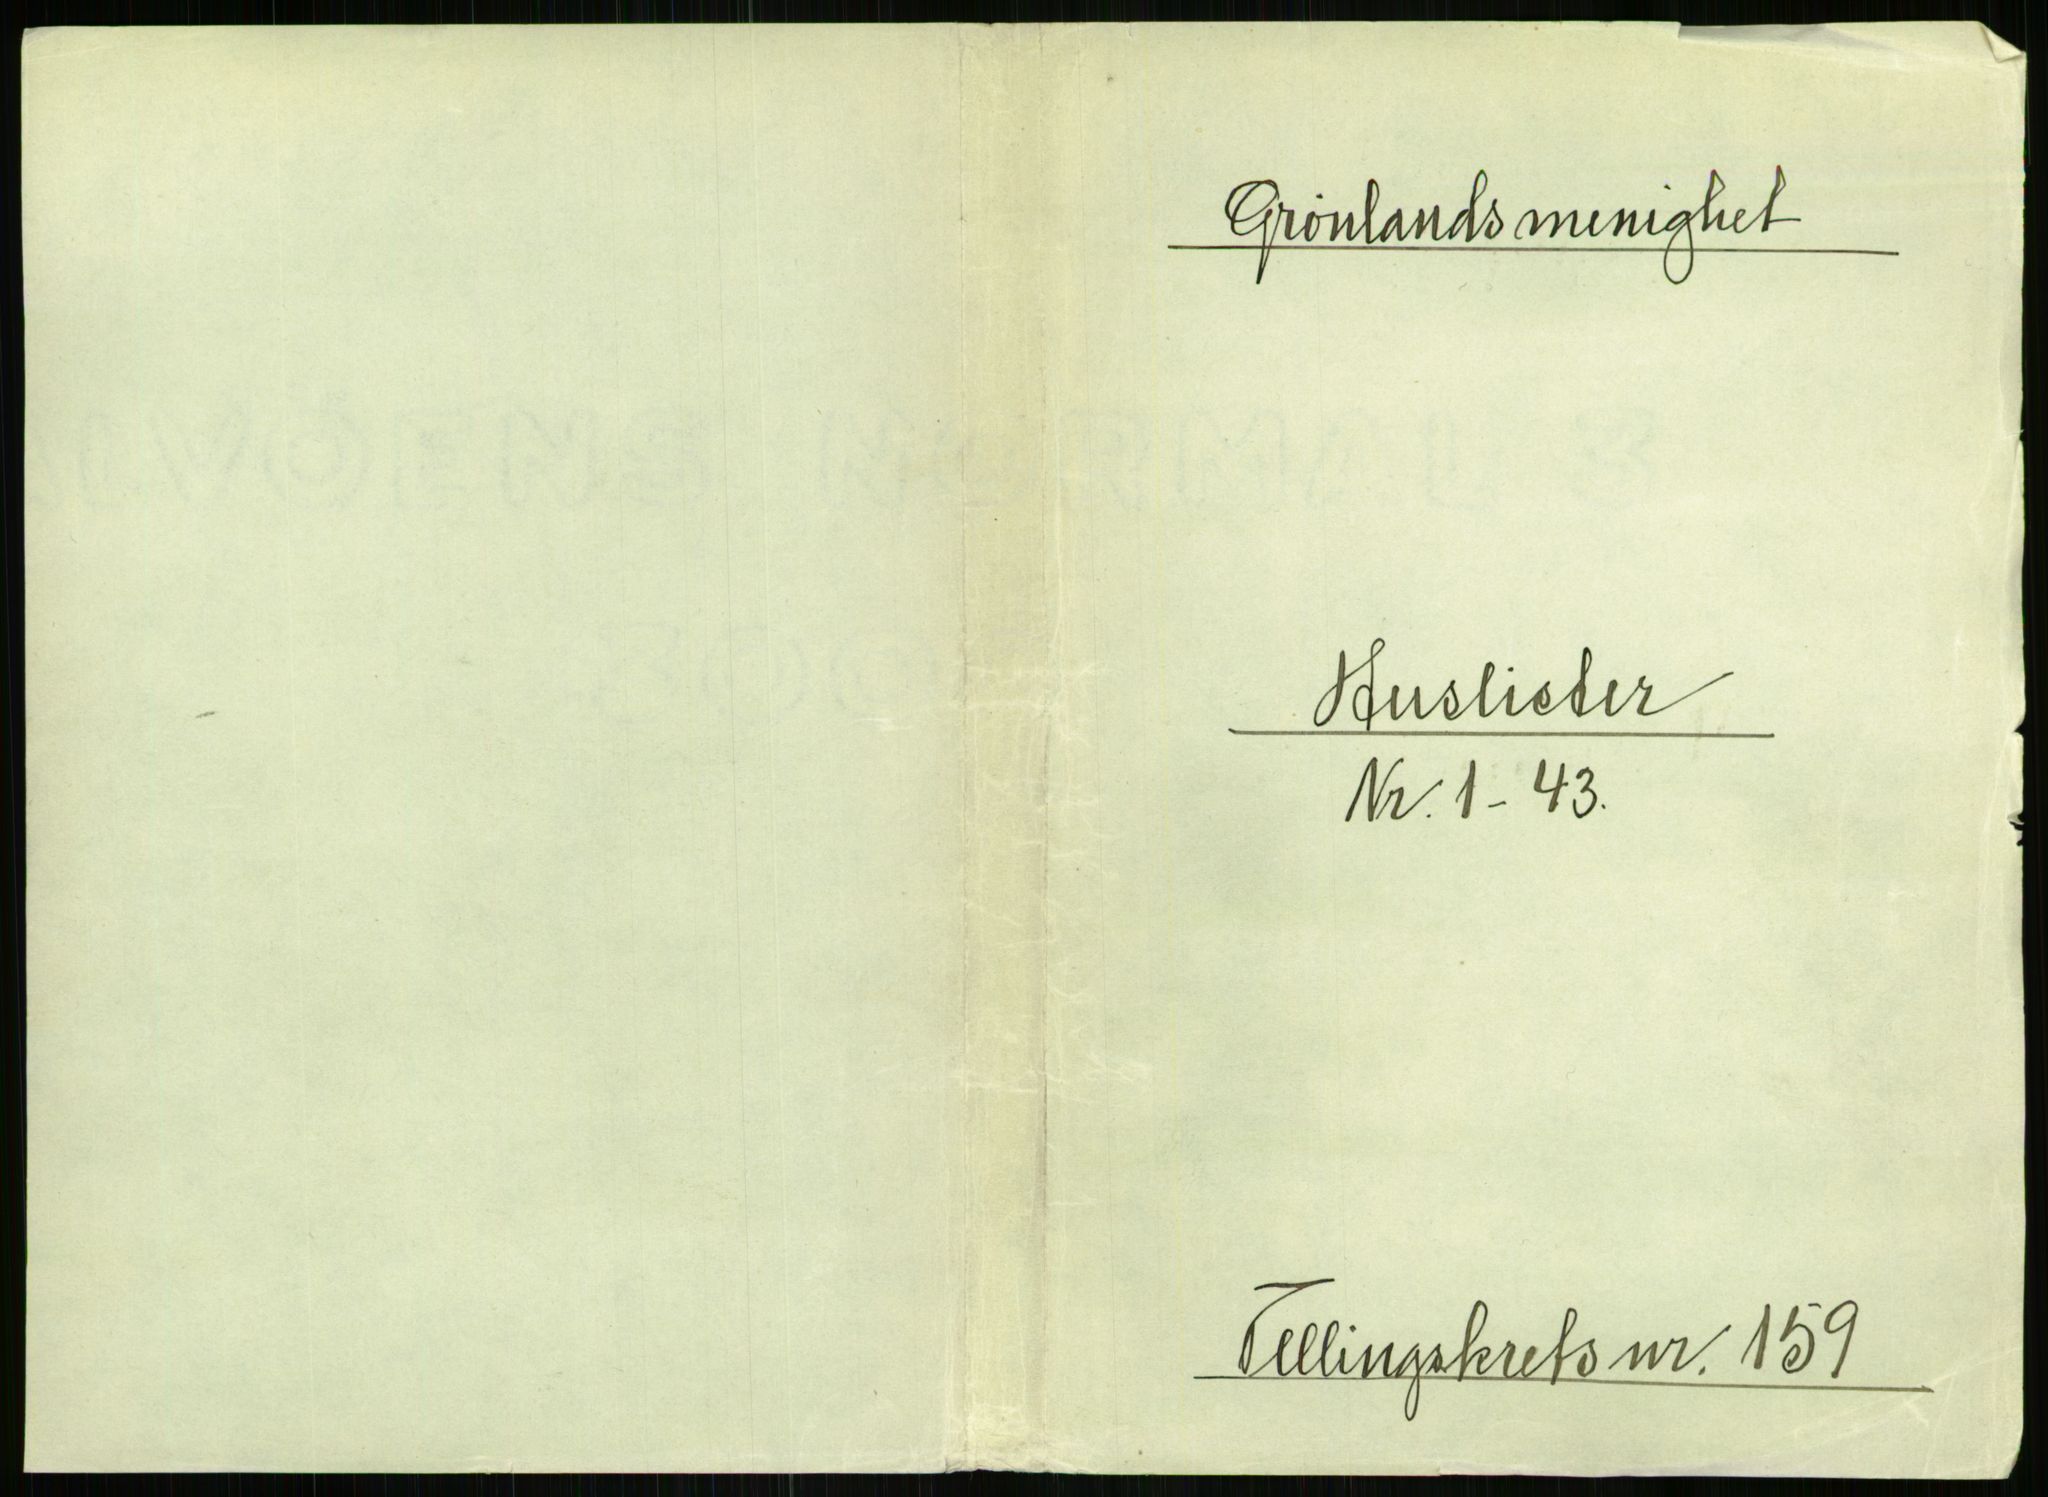 Grönlands menighet
Huslister
Nr. 1 - 43.
Tellingskrets nr. 159